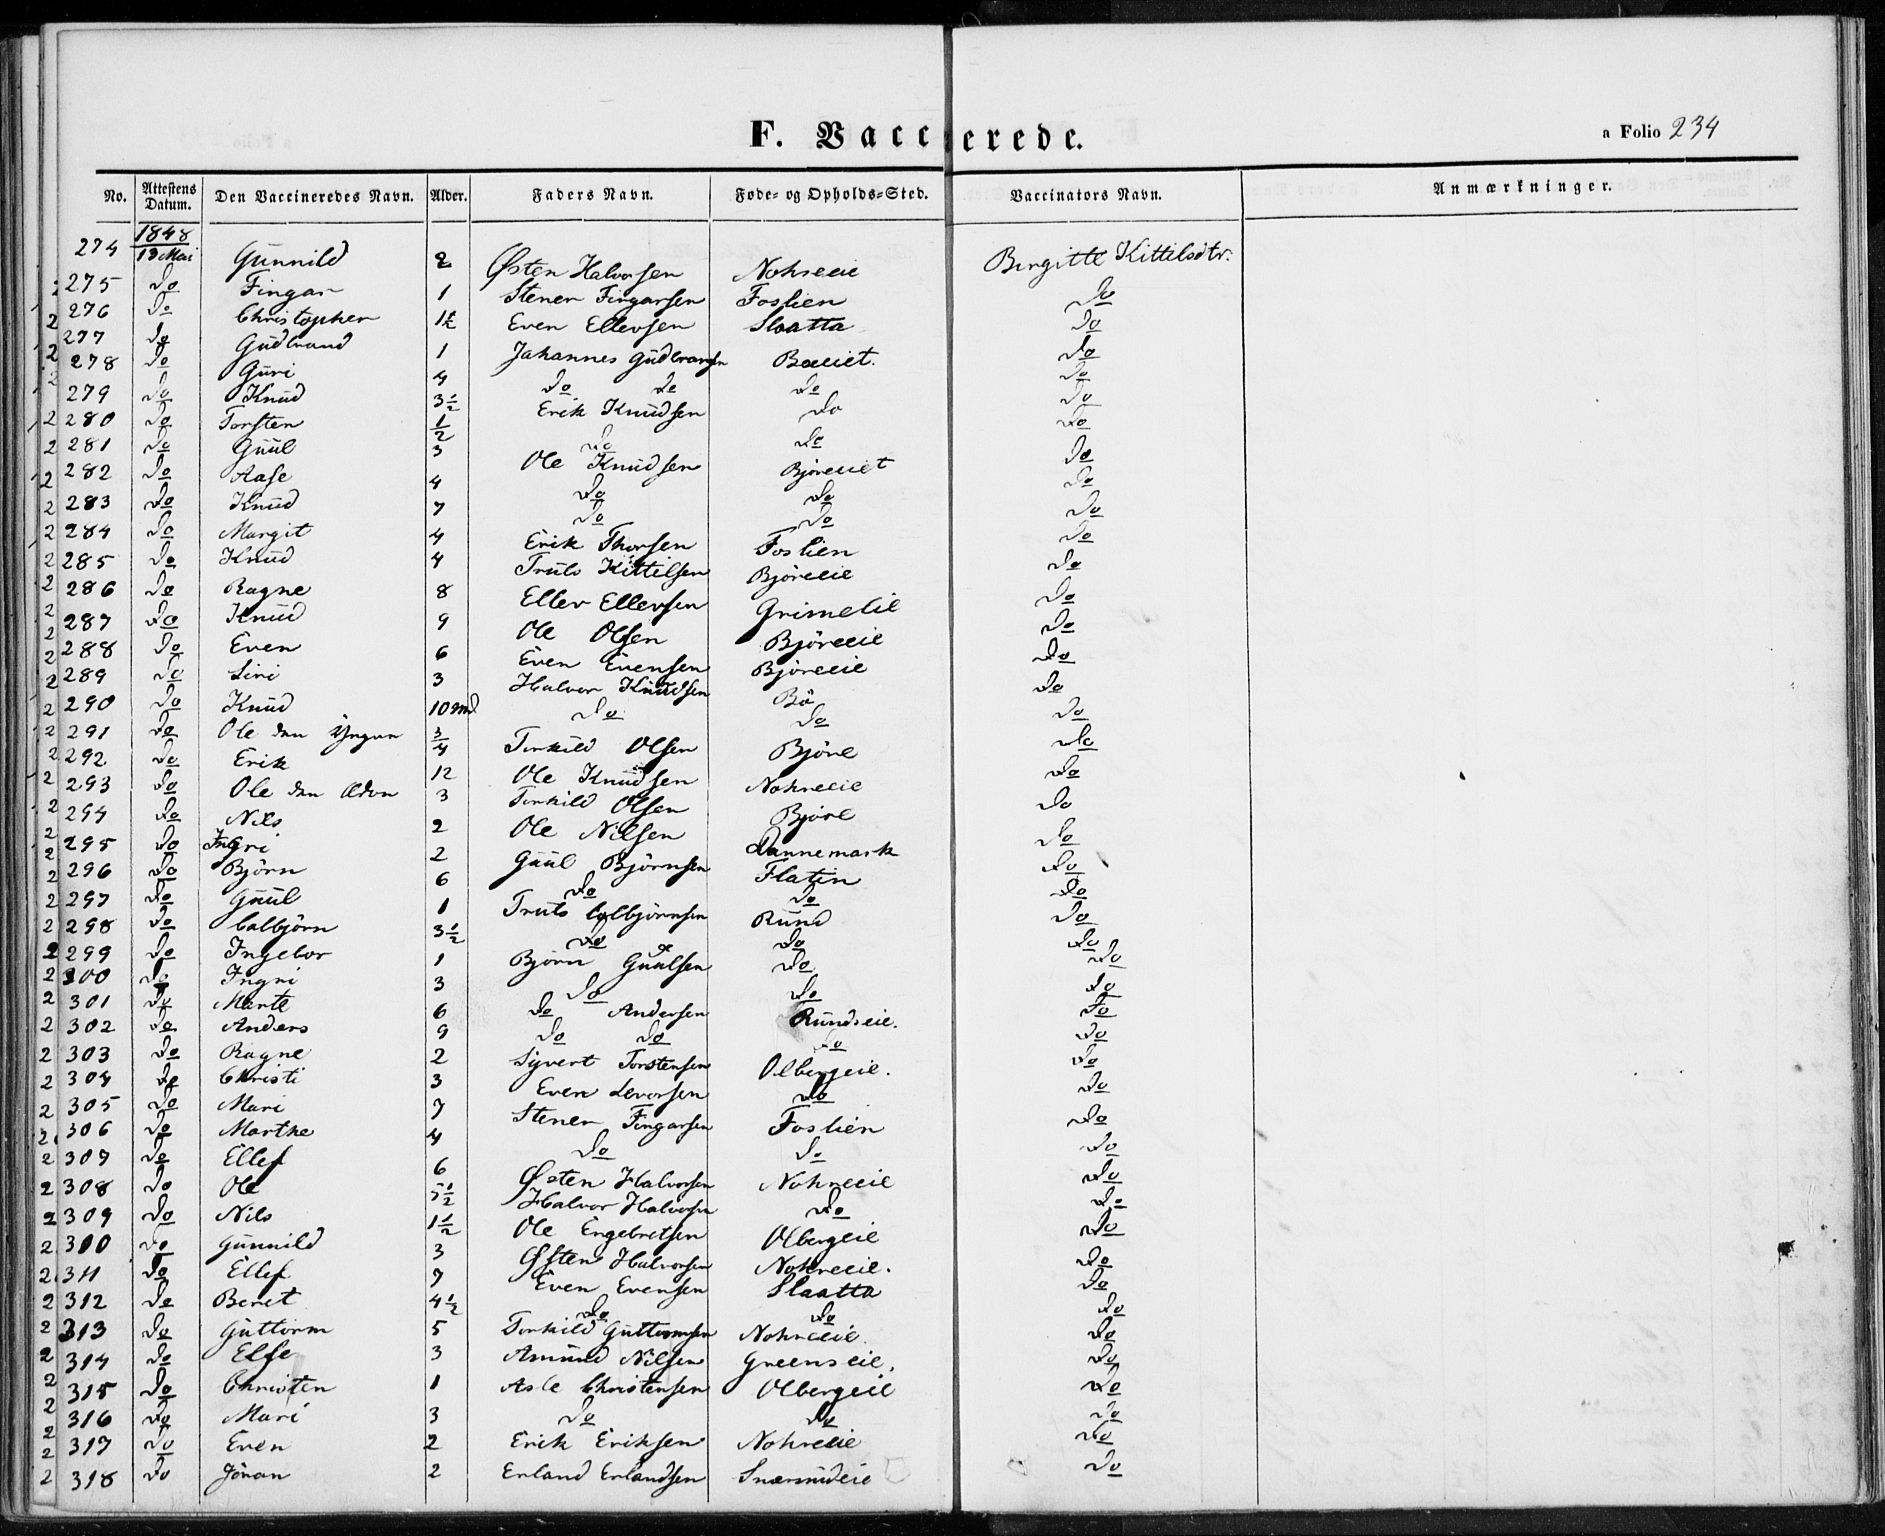 F. Vaccinerede.
a Folio 234
No. Attestens Datum. Den Vaccineredes Navn. Alder. Faders Navn. Føde- og Opholds-Sted. Vaccinators Navn. Anmærkninger.
1848
274 13 Mai Gunnild 2 Østen Halvorsen Nohreeie Birgitte Kittilsdtr.
275 Do Fingar 1 Stener Fingarsen Foslien Do
276 Do Christopher 1½ Even Ellevsen Slaatta Do
277 Do Gudbrand 1 Johannes Gudbrandsen Bøeiet. Do
278 Do Guri 4 Do Do Do Do
279 Do Knud 3½ Erik Knudsen Do Do
280 Do Torsten ½ Do Do Do
281 Do Guul 3 Ole Knudsen Björeeiet Do
282 Do Aase 4 Do Do Do
283 Do Knud 7 Do Do Do
284 Do Margit 4 Erik Thorsen Foslien Do
285 Do Knud 4 Truls Kittilsen Björeeie Do
286 Do Ragne 8 Ellev Ellevsen Grimelie Do
287 Do Knud 9 Ole Olsen Björeeie Do
288 Do Even 6 Even Evensen Björeeie Do
289 Do Siri 3 Halvor Knudsen Bö Do
290 Do Knud 10 Md Do Do Do
291 Do Ole den Yngre ¾ Torkild Olsen Björe Do
292 Do Erik 12 Ole Knudsen Nohreeie Do
293 Do Ole den Ældre 3 Torkild Olsen Björe Do
294 Do Nils 2 Ole Nilsen Dannemark Do
295 Do Ingri 2 Guul Björnsen Flaten Do
296 Do Björn 6 Do Do Do
297 Do Guul 1 Truls Colbjörnsen Rund Do
298 Do Colbjörn 3½ Do Do Do
299 Do Ingebor 1 Björn Guulsen Do Do
300 Do Ingri 3 Do Do Do
301 Do Marte 6 Do Andersen Rundseie. Do
302 Do Anders 9 Do Do Do Do
303 Do Ragne 2 Syvert Torstensen Olbergeie. Do
304 Do Christi 3 Even Levorsen Do Do
305 Do Mari 7 Stener Fingarsen Foslien Do
306 Do Marthe 4 Do Do Do
307 Do Ellef 6 Østen Halvorsen Nohreeie Do
308 Do Ole 5½ Halvor Halvorsen Do Do
309 Do Nils 1½ Ole Engebretsen Olbergeie Do
310 Do Gunnild 3 Østen Halvorsen Nohreeie. Do
311 Do Ellef 7 Even Evensen Slaatta Do
312 Do Beret 4½ Do Do Do
313 Do Guttorm 5 Torkild Guttormsen Nohreeie Do
314 Do Else 3 Amund Nilsen Greenseie. Do
315 Do Christen 1 Asle Christensen Olbergeie Do
316 Do Mari 3 Do Do Do
317 Do Even 2 Erik Eriksen Nohreeie Do
318 Do Jöran 2 Erland Erlandsen Do